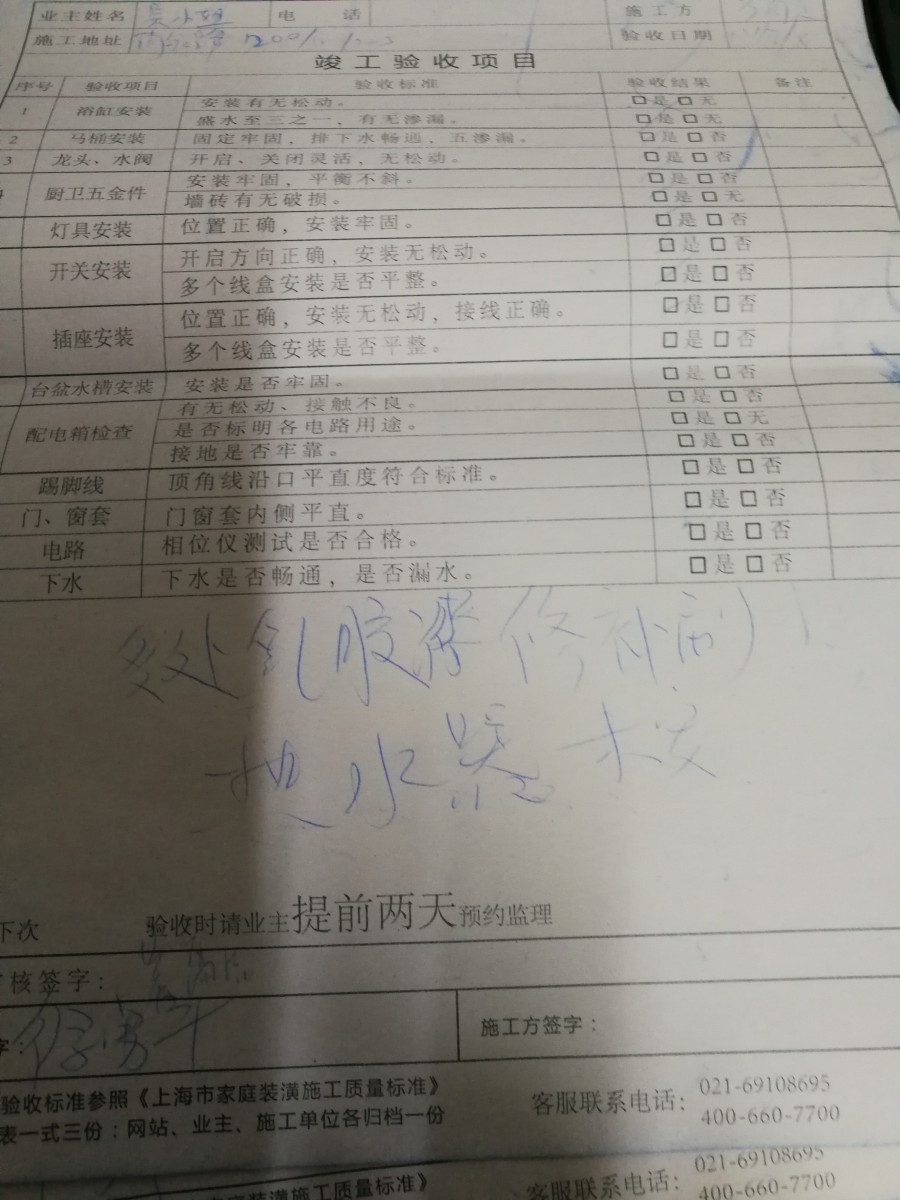 业主姓名 吴小姐 电 话 施工方
施工地址 验收日期
竣工验收项目
序号 验收项目 验收标准 验收结果 备注
1 浴缸安装 安装有无松动。 □是□无
盛水至三之一，有无渗漏。 □是□无
2 马桶安装 固定牢固，排下水畅通，五渗漏。 □是□否
3 龙头、水阀 开启、关闭灵活，无松动。 □是□否
厨卫五金件 安装牢固，平衡不斜。 □是□否
墙砖有无破损。 □是□无
灯具安装 位置正确，安装牢固。 □是□否
开关安装 开启方向正确，安装无松动。 □是□否
多个线盒安装是否平整。 □是□否
插座安装 位置正确，安装无松动，接线正确。 □是□否
多个线盒安装是否平整。 □是□否
台盆水槽安装 安装是否牢固。 □是□否
配电箱检查 有无松动、接触不良。 □是□否
是否标明各电路用途。 □是□无
接地是否牢靠。 □是□否
踢脚线 顶角线沿口平直度符合标准。 □是□否
门、窗套 门窗套内侧平直。 □是□否
电路 相位仪测试是否合格。 □是□否
下水 下水是否畅通，是否漏水。 □是□否
多处乳胶漆修补
水器未
下次 验收时请业主提前两天预约监理
核签字：
字： 施工方签字：
验收标准参照《上海市家庭装潢施工质量标准》
表一式三份：网站、业主、施工单位各归档一份
客服联系电话： 021-69108695
400-660-7700
家庭装潢施工质量标准》 客服联系电话： 021-69108695
400-660-7700